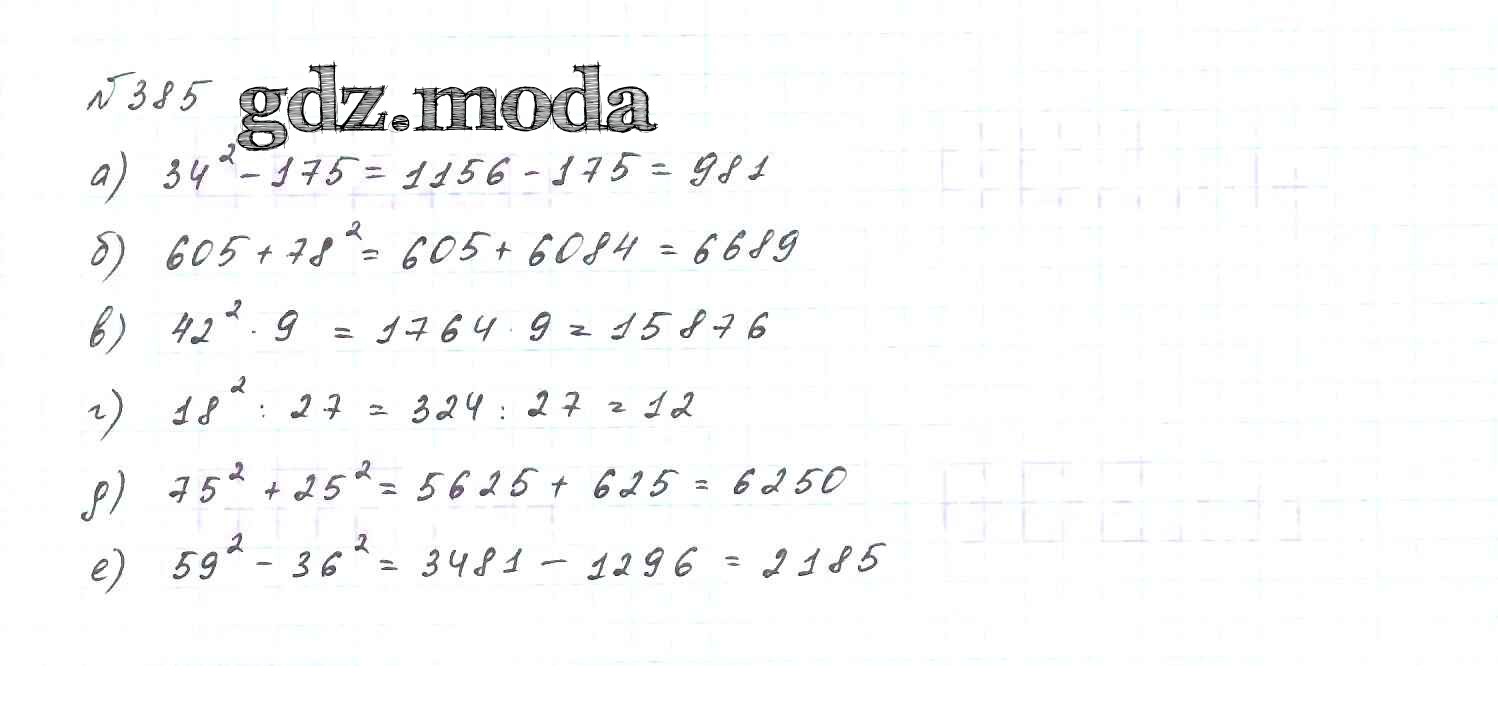 №385 gdz.moda
а) 34² - 175 = 1156 - 175 = 981
б) 605 + 78² = 605 + 6084 = 6689
в) 42² · 9 = 1764 · 9 = 15876
г) 18² : 27 = 324 : 27 = 12
д) 75² + 25² = 5625 + 625 = 6250
е) 59² - 36² = 3481 - 1296 = 2185